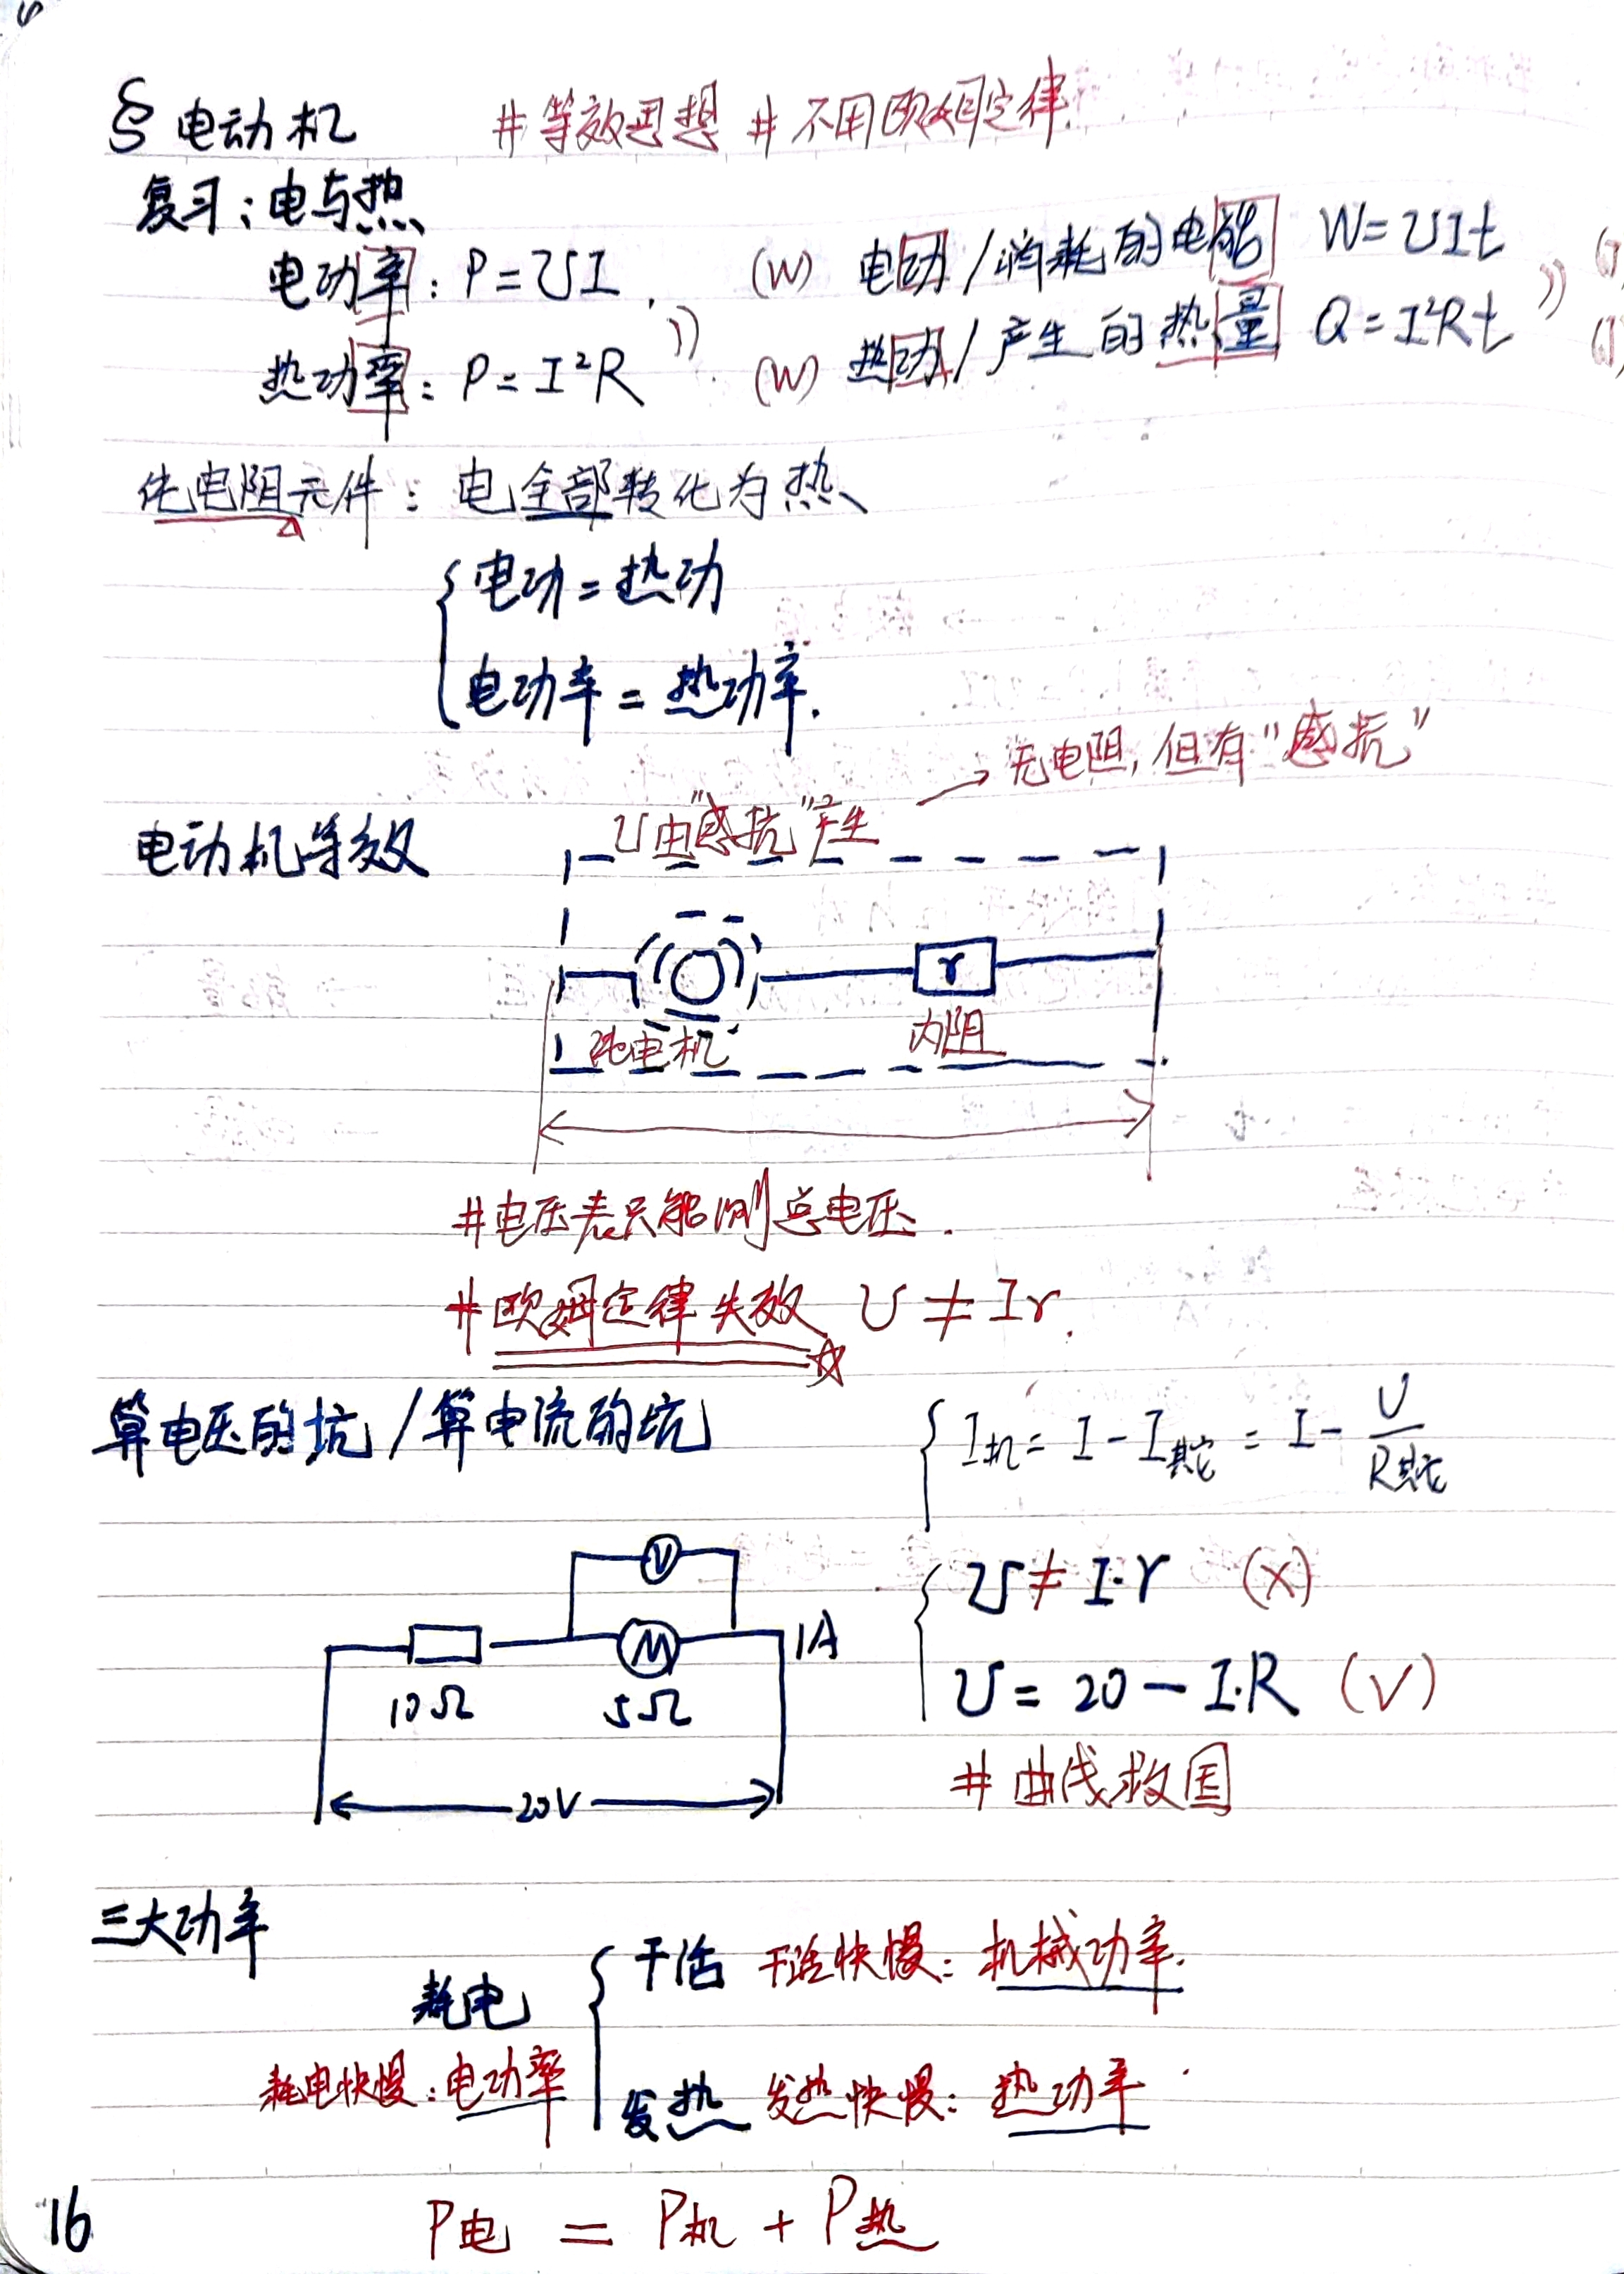 § 电动机 #等效思想 #不用欧姆定律.
复习:电与热
电功率: P=UI. (W) 电功/消耗的电能 W=UIt (J)
热功率: P=I²R (W) 热功/产生的热量 Q=I²Rt (J)
纯电阻元件: 电全部转化为热
电功=热功
电功率=热功率.
U由"感抗"产生 → 无电阻,但有"感抗"
电动机等效
r
纯电机 内阻
#电压表只能测总电压.
#欧姆定律失效 U≠Ir.
算电压的坑/算电流的坑 I机=I-I其它=I-U/R其它
V
U≠I·r (×)
M 1A
10Ω 5Ω U=20-I·R (√)
#曲线救国
20V
三大功率
干活 干活快慢:机械功率.
耗电
耗电快慢:电功率
发热 发热快慢:热功率.
16 P电=P机+P热